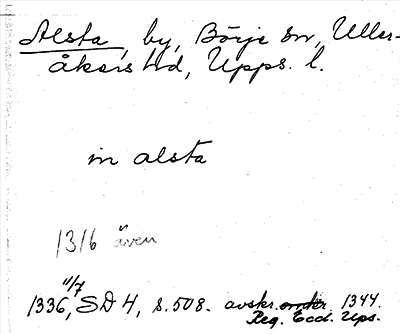 Alsta, by, Börje sn, Uller-
åkers hd, Upps. l.
in alsta
1316 även
11/7
1336, SD 4, s. 508. avskr. 1344.
Reg. Eccl. Ups.